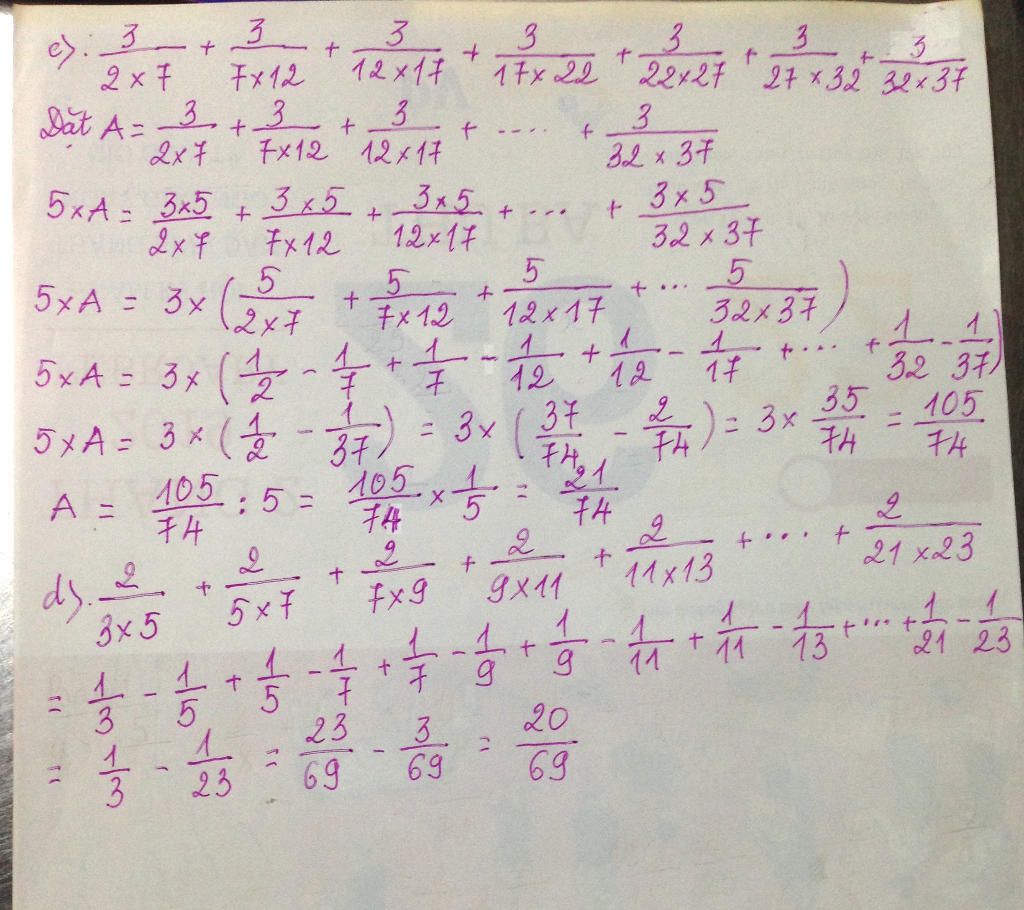 c). 3/(2×7) + 3/(7×12) + 3/(12×17) + 3/(17×22) + 3/(22×27) + 3/(27×32) + 3/(32×37)
Đặt A = 3/(2×7) + 3/(7×12) + 3/(12×17) + .... + 3/(32×37)
5×A = (3×5)/(2×7) + (3×5)/(7×12) + (3×5)/(12×17) + ... + (3×5)/(32×37)
5×A = 3×(5/(2×7) + 5/(7×12) + 5/(12×17) + ... 5/(32×37))
5×A = 3×(1/2 - 1/7 + 1/7 - 1/12 + 1/12 - 1/17 + ... + 1/32 - 1/37)
5×A = 3×(1/2 - 1/37) = 3×(37/74 - 2/74) = 3×35/74 = 105/74
A = 105/74 : 5 = 105/74 × 1/5 = 21/74
d). 2/(3×5) + 2/(5×7) + 2/(7×9) + 2/(9×11) + 2/(11×13) + ... + 2/(21×23)
= 1/3 - 1/5 + 1/5 - 1/7 + 1/7 - 1/9 + 1/9 - 1/11 + 1/11 - 1/13 + ... + 1/21 - 1/23
= 1/3 - 1/23 = 23/69 - 3/69 = 20/69